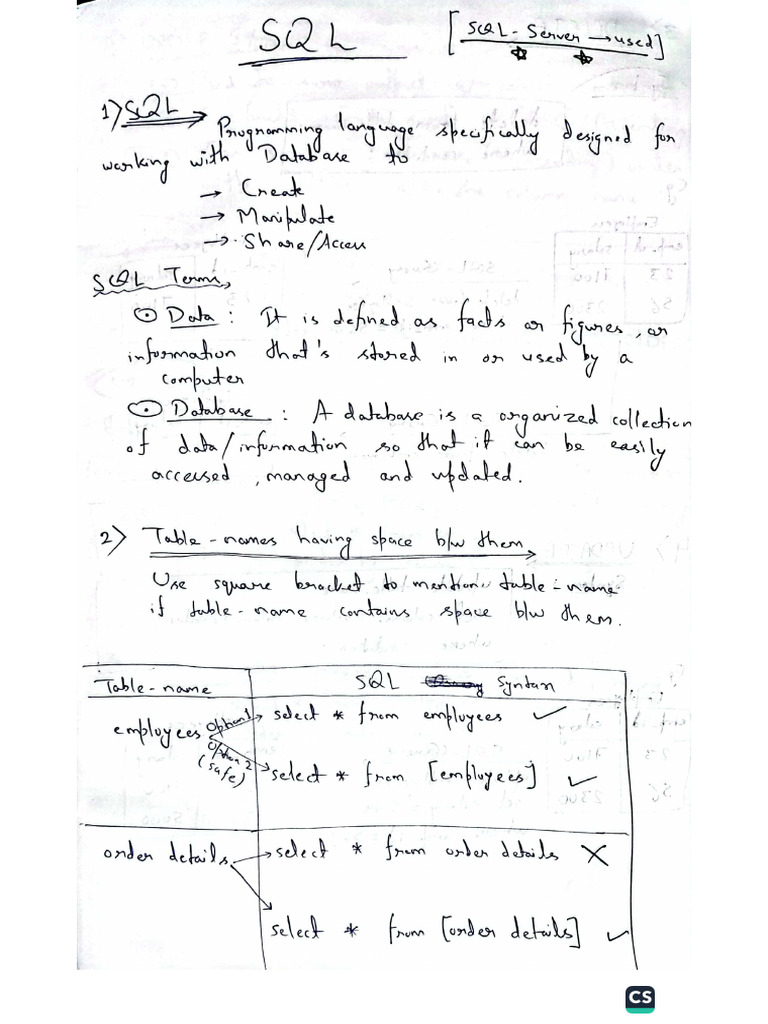 SQL
[SQL-Server → used]
1) SQL → Programming language specifically designed for
working with Database to
→ Create
→ Manipulate
→ Share/Access
SQL Terms,
⊙ Data : It is defined as facts or figures, or
information that's stored in or used by a
computer
⊙ Database : A database is a organized collection
of data/information so that it can be easily
accessed, managed and updated.
2) Table-names having space b/w them
Use square bracket to mention table-name
if table-name contains space b/w them.
Table-name SQL Syntax
employees Option1 → select * from employees ✓
Option 2 (safe) → select * from [employees] ✓
order details → select * from order details X
→ select * from [order details] ✓
CS